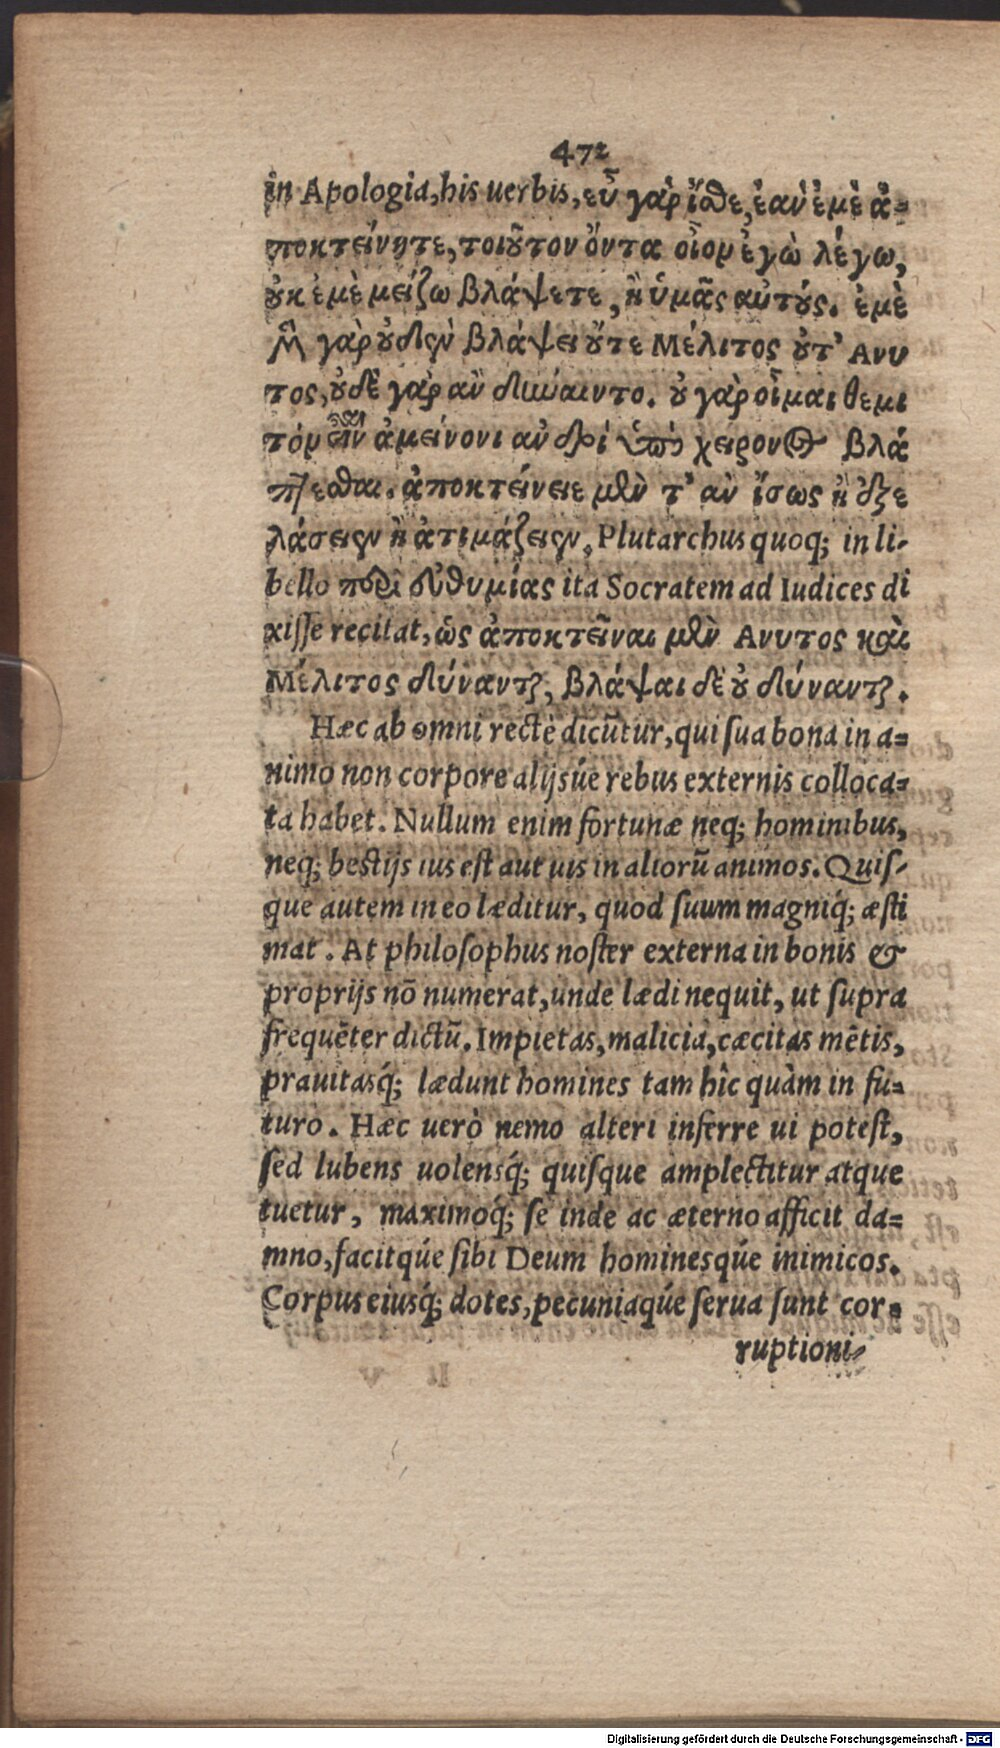 472
in Apologia, his uerbis, εὖ γὰρ ἴσθε, ἐὰν ἐμὲ ἀ=
ποκτείνητε, τοιοῦτον ὄντα οἷον ἐγὼ λέγω,
οὐκ ἐμὲ μείζω βλάψετε, ἢ ὑμᾶς αὐτούς. ἐμὲ
μὲν γὰρ οὐδὲν βλάψει οὔτε Μέλιτος οὔτ' Ανυ
τος, οὐδὲ γὰρ ἂν δύναιντο. οὐ γὰρ οἶμαι θεμι
τόν εἶναι ἀμείνονι ἀνδρὶ ὑπὸ χείρονος βλά
πτεσθαι. ἀποκτείνειε μὲν τ' ἂν ἴσως ἢ ἐξε
λάσειεν ἢ ἀτιμάζειεν. Plutarchus quoq; in li-
bello περὶ εὐθυμίας ita Socratem ad Iudices di
xisse recitat, ὡς ἀποκτεῖναι μὲν Ανυτος καὶ
Μέλιτος δύνανται, βλάψαι δὲ οὐ δύνανται.
Hæc ab omni rectè dicũtur, qui sua bona in a=
nimo non corpore alijsúe rebus externis colloca=
ta habet. Nullum enim fortunæ neq; hominibus,
neq; bestijs ius est aut uis in aliorũ animos. Quis-
que autem in eo læditur, quod suum magniq́; æsti
mat. At philosophus noster externa in bonis &
proprijs nō numerat, unde lædi nequit, ut supra
frequēter dictũ. Impietas, malicia, cæcitas mētis,
prauitasq́; lædunt homines tam hîc quàm in fu=
turo. Hæc uerò nemo alteri inferre ui potest,
sed lubens uolensq́; quisque amplectitur atque
tuetur, maximoq́; se inde ac æterno afficit da=
mno, facitqúe sibi Deum hominesqúe inimicos.
Corpus eiusq́; dotes, pecuniaqúe serua sunt cor=
ruptioni-
Digitalisierung gefördert durch die Deutsche Forschungsgemeinschaft - DFG